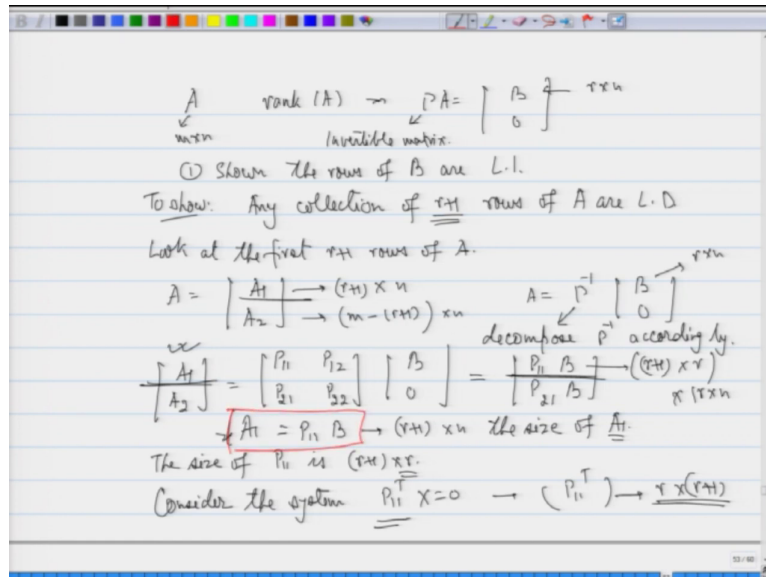 B I
A rank (A) ~ PA = [ B 0 ] ← r×n
m×n Invertible matrix.
① Shown the rows of B are L.I.
To show: Any collection of r+1 rows of A are L.D
Look at the first r+1 rows of A.
A = [ A1 A2 ] → (r+1) × n → (m-(r+1)) × n A = P^-1 [ B 0 ] r×n
decompose P^-1 accordingly.
[ A1 A2 ] = [ P11 P12 P21 P22 ] [ B 0 ] = [ P11 B P21 B ] → ((r+1) × r) × (r×n
A1 = P11 B → (r+1) × n the size of A1.
The size of P11 is (r+1) × r.
Consider the system P11^T x=0 → (P11^T) → r × (r+1)
53 / 60